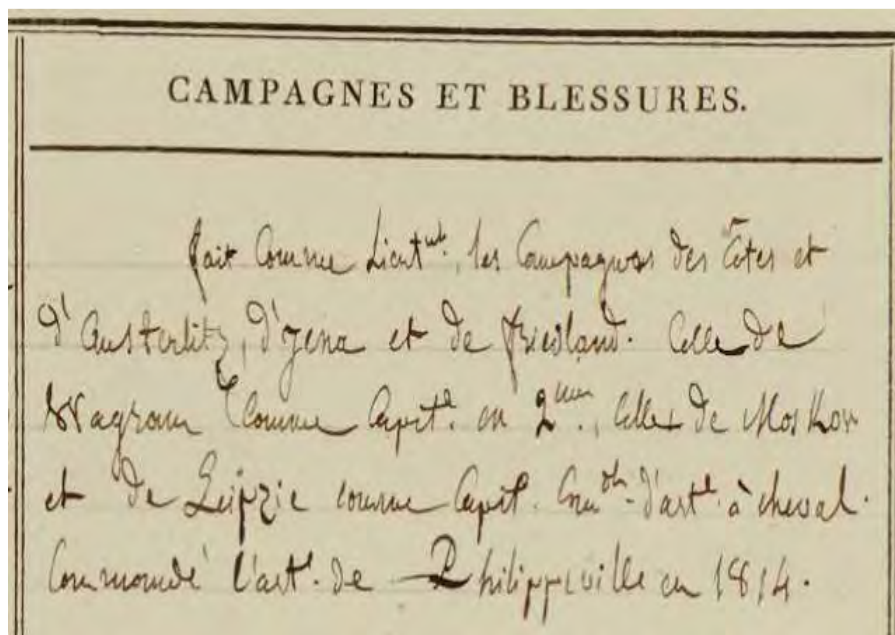 CAMPAGNES ET BLESSURES.
fait Comme Lieut.nt, les Campagnes des Côtes et
d'Austerlitz, d'Jena et de Friedland. Celle de
Wagram Comme Capit.e en 2.me, Celles de Moskow
et de Leipzic comme Capit. Com.dt d'art.e à cheval.
Commandé l'art.e de Philippeville en 1814.